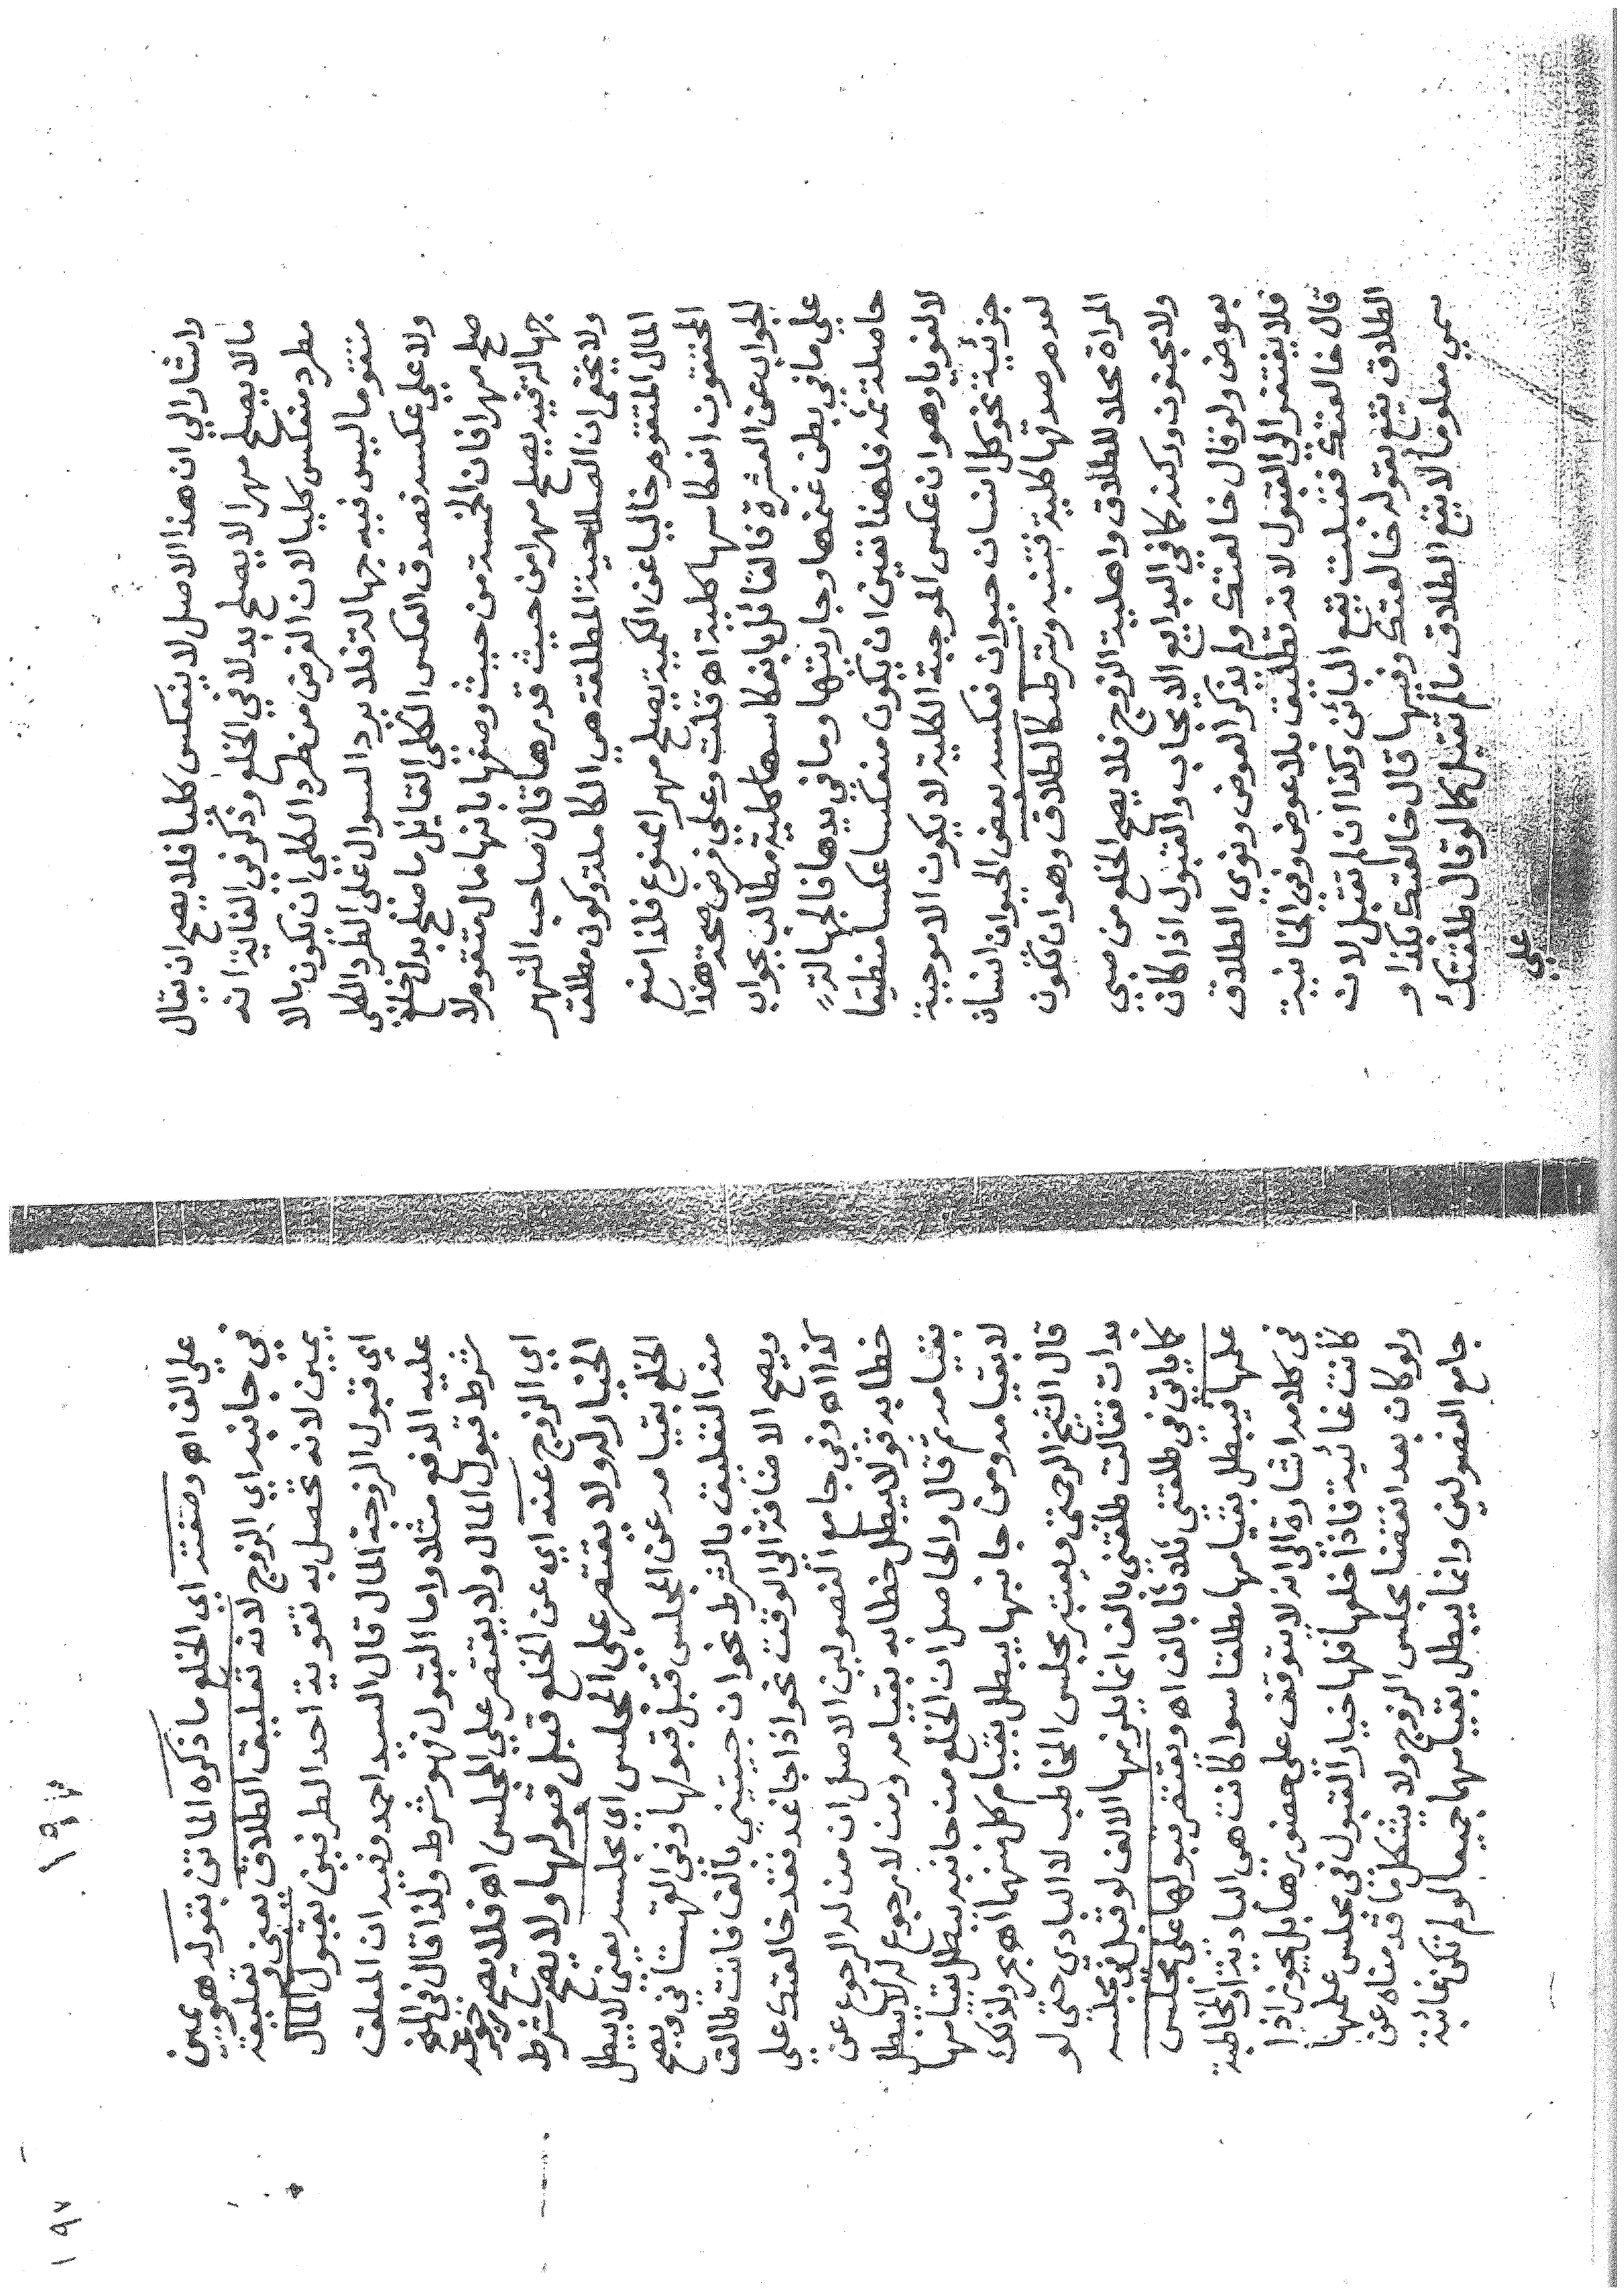 واشار الي ان هذا الاصل لا ينعكس كليا فلا يصح ان يقال
ما لا يصلح مهرا لا يصلح بدلا في الخلع وذكر في الغاية انه
مطرد منعكس كليا لان الغرض من طرد الكلي ان يكون مالا
متقوما ليس فيه جهالة فلا يرد السوال علي الطرد الكلي
ولا علي عكسه فصدق العكس الكلي القايل ما صلح بدل خلع
صلح مهرا فان الخمسة من حيث وصفها بانها مال متقوم لا
جهالة فيه يصلح مهرا من حيث قدرها قال صاحب النهر
ولا يخفي ان الصلاحية المطلقة هي الكاملة وكون مطلق
المال المتقوم خاليا عن الكمية يصلح مهرا ممنوع فلذا منع
المحققون انعكاسها كلية اه قلت وعلي فرض صحة هذا
الجواب عن العشرة فالقائل بانعكاسها كلية مطالب بجواب
علي ما في بطن غنمها وجاريتها وما في يدها فالجهالة
حاصلة ثمه فلهذا تعين ان يكون منعكسا عكسا منطقيا
لا لغويا وهو ان عكس الموجبة الكلية لا يكون الا موجبة
جزئية نحو كل انسان حيوان فعكسه بعض الحيوان انسان
لعدم صدقها كلية فتنبه وشرطه كالطلاق وهو ان تكون
المراة محلا للطلاق واهلية الزوج فلا يصح الخلع من صبي
ولا مجنون وركنه كما في البدايع الايجاب والقبول اذا كان
بعوض ولو قال خالعتك ولم يذكر العوض ونوي الطلاق
فلا يفتقر الي القبول لانه تطليق بلا عوض وفي الخانية
قال خالعتك فقبلت يقع البائن وكذا ان لم تقبل لان
الطلاق يقع بقوله خالعتك وفيها قال خالعتك بكذا و
سمي معلوما لا يقع الطلاق ما لم تقبل كما لو قال طلقتك
علي
١٩٧
علي الف اه وصفته اي الخلع ما ذكره الماتن بقوله هو يمين
في جانبه اي الزوج لانه تعليق الطلاق بمعني تعليقه
يمين لانه تحصل به تقوية احد الطرفين بقبول المال
اي قبول الزوجة المال قال السيد احمد وفيه ان المعلق
عليه الدفع مثلا واما القبول فهو شرط ولذا قال في المنح
شرط قبول المال ولا يقتصر علي المجلس اه فلا يصح رجوعه
اي الزوج عنه اي عن الخلع قبل قبولها ولا يصح شرط
الخيار له ولا يقتصر علي المجلس اي مجلسه يعني لا يبطل
الخلع بقيامه عن المجلس قبل قبولها وفي القهستاني ويصح
منه التعليق بالشرط نحو ان جيتيني بالف فانت طالق
ويصح الاضافة الي الوقت نحو اذا جا غد فقد خالعتك علي
كذا اه وفي جامع الفصولين الاصل ان من له الرجوع عن
خطابه قولا يبطل خطابه بقيامه ومن لا رجوع له لا يبطل
بقيامه ثم قال والحاصل ان الخلع من جانبه يبطل بقيامها
لا بقيامه ومن جانبها يبطل بقيام كل منهما اه بحر ولذلك
قال الشيخ الرحمتي ويعتبر مجلس المخاطب لا البادي حتي لو
بدات فقالت طلقني بالف انما يلزمها الالف لو قبل في مجلسه
كما ياتي في طلقني ثلاثا بالف اه ويقتصر قبولها علي مجلس
علمها فيبطل بقيامها مطلقا سوا كانت هي البادية او المخاطبة
في كلامه اشارة الي انه لا يتوقف علي حضورها بل يجوز اذا
كانت غائبة فاذا خلعها فلها خيار القبول في مجلس علمها
ولو كان بعد انقضا مجلس الزوج ولا يشكل ما قدمناه عن
جامع الفصولين وانما يبطل بقيامهما جميعا لو لم تكن غائبة
١٩٧